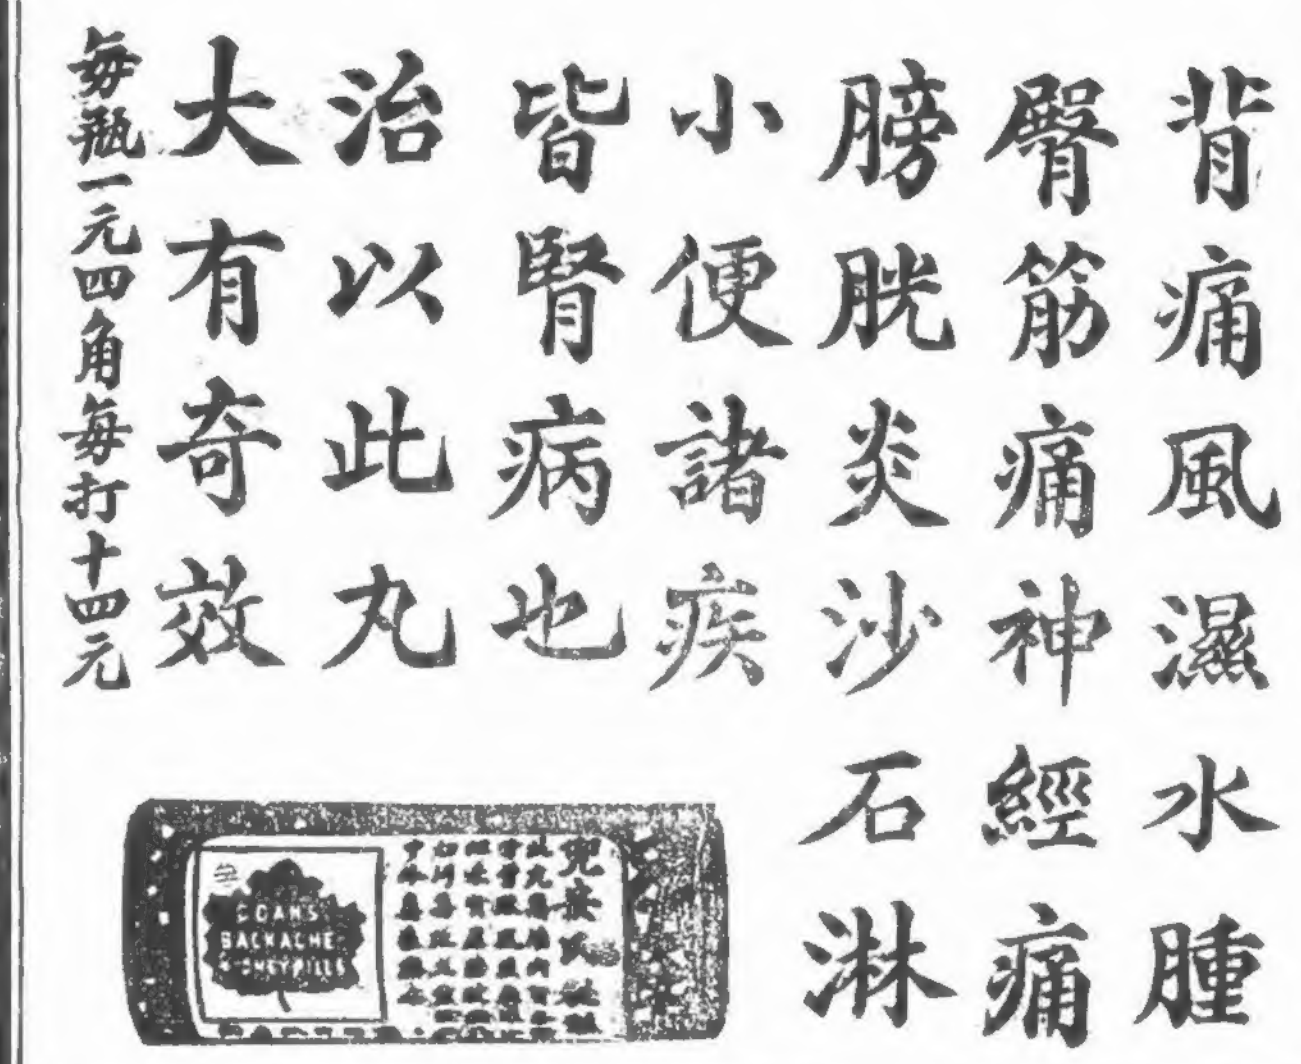 背痛風濕水腫
臀筋痛神經痛
膀胱炎沙石淋
小便諸疾
皆腎病也
治以此丸
大有奇效
每瓶一元四角每打十四元
DOAN'S
BACKACHE
KIDNEY PILLS